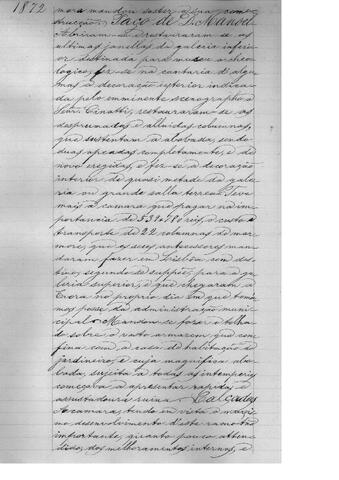 1872
mara mandou sustar a sua cons
trucção. Paço de D. Manoel
Abriram-se e restauraram-se as
ultimas janellas da galeria inferi-
or destinada para museu archeo-
logico, fez-se na cantaria d'algu-
mas a decoração exterior indica-
da pelo eminente scenographo o
Senr. Cinatti, restauraram-se as
desprumadas e alluidas columnas,
que sustentam a abobada, sendo
duas apeadas completamente e de
novo erigidas, e fez-se a decoração
interior de quasi metade da gale-
ria ou grande salla terrea. Teve
mais a camara que pagar na im-
portancia de reis, o custo e
transporte de 22 columnas de mar-
more, que os seus antecessores man-
daram fazer em Lisboa com des-
tino, segundo se suppõe, para a ga-
leria superior, e que chegaram a
Evora no proprio dia em que toma-
mos posse da administração muni-
cipal. Mandou-se forar o telha-
do sobre o armazem que con-
fina com a casa de habitação do
jardineiro, e cuja magnifica abo-
bada, sujeita a todas as intemperies
começava a apresentar rapida e
assustadora ruina. Calçadas
A camara, tendo em vista o maxi-
mo desenvolvimento d'este ramo tão
importante, quanto pouco atten-
dido, dos melhoramentos internos, e